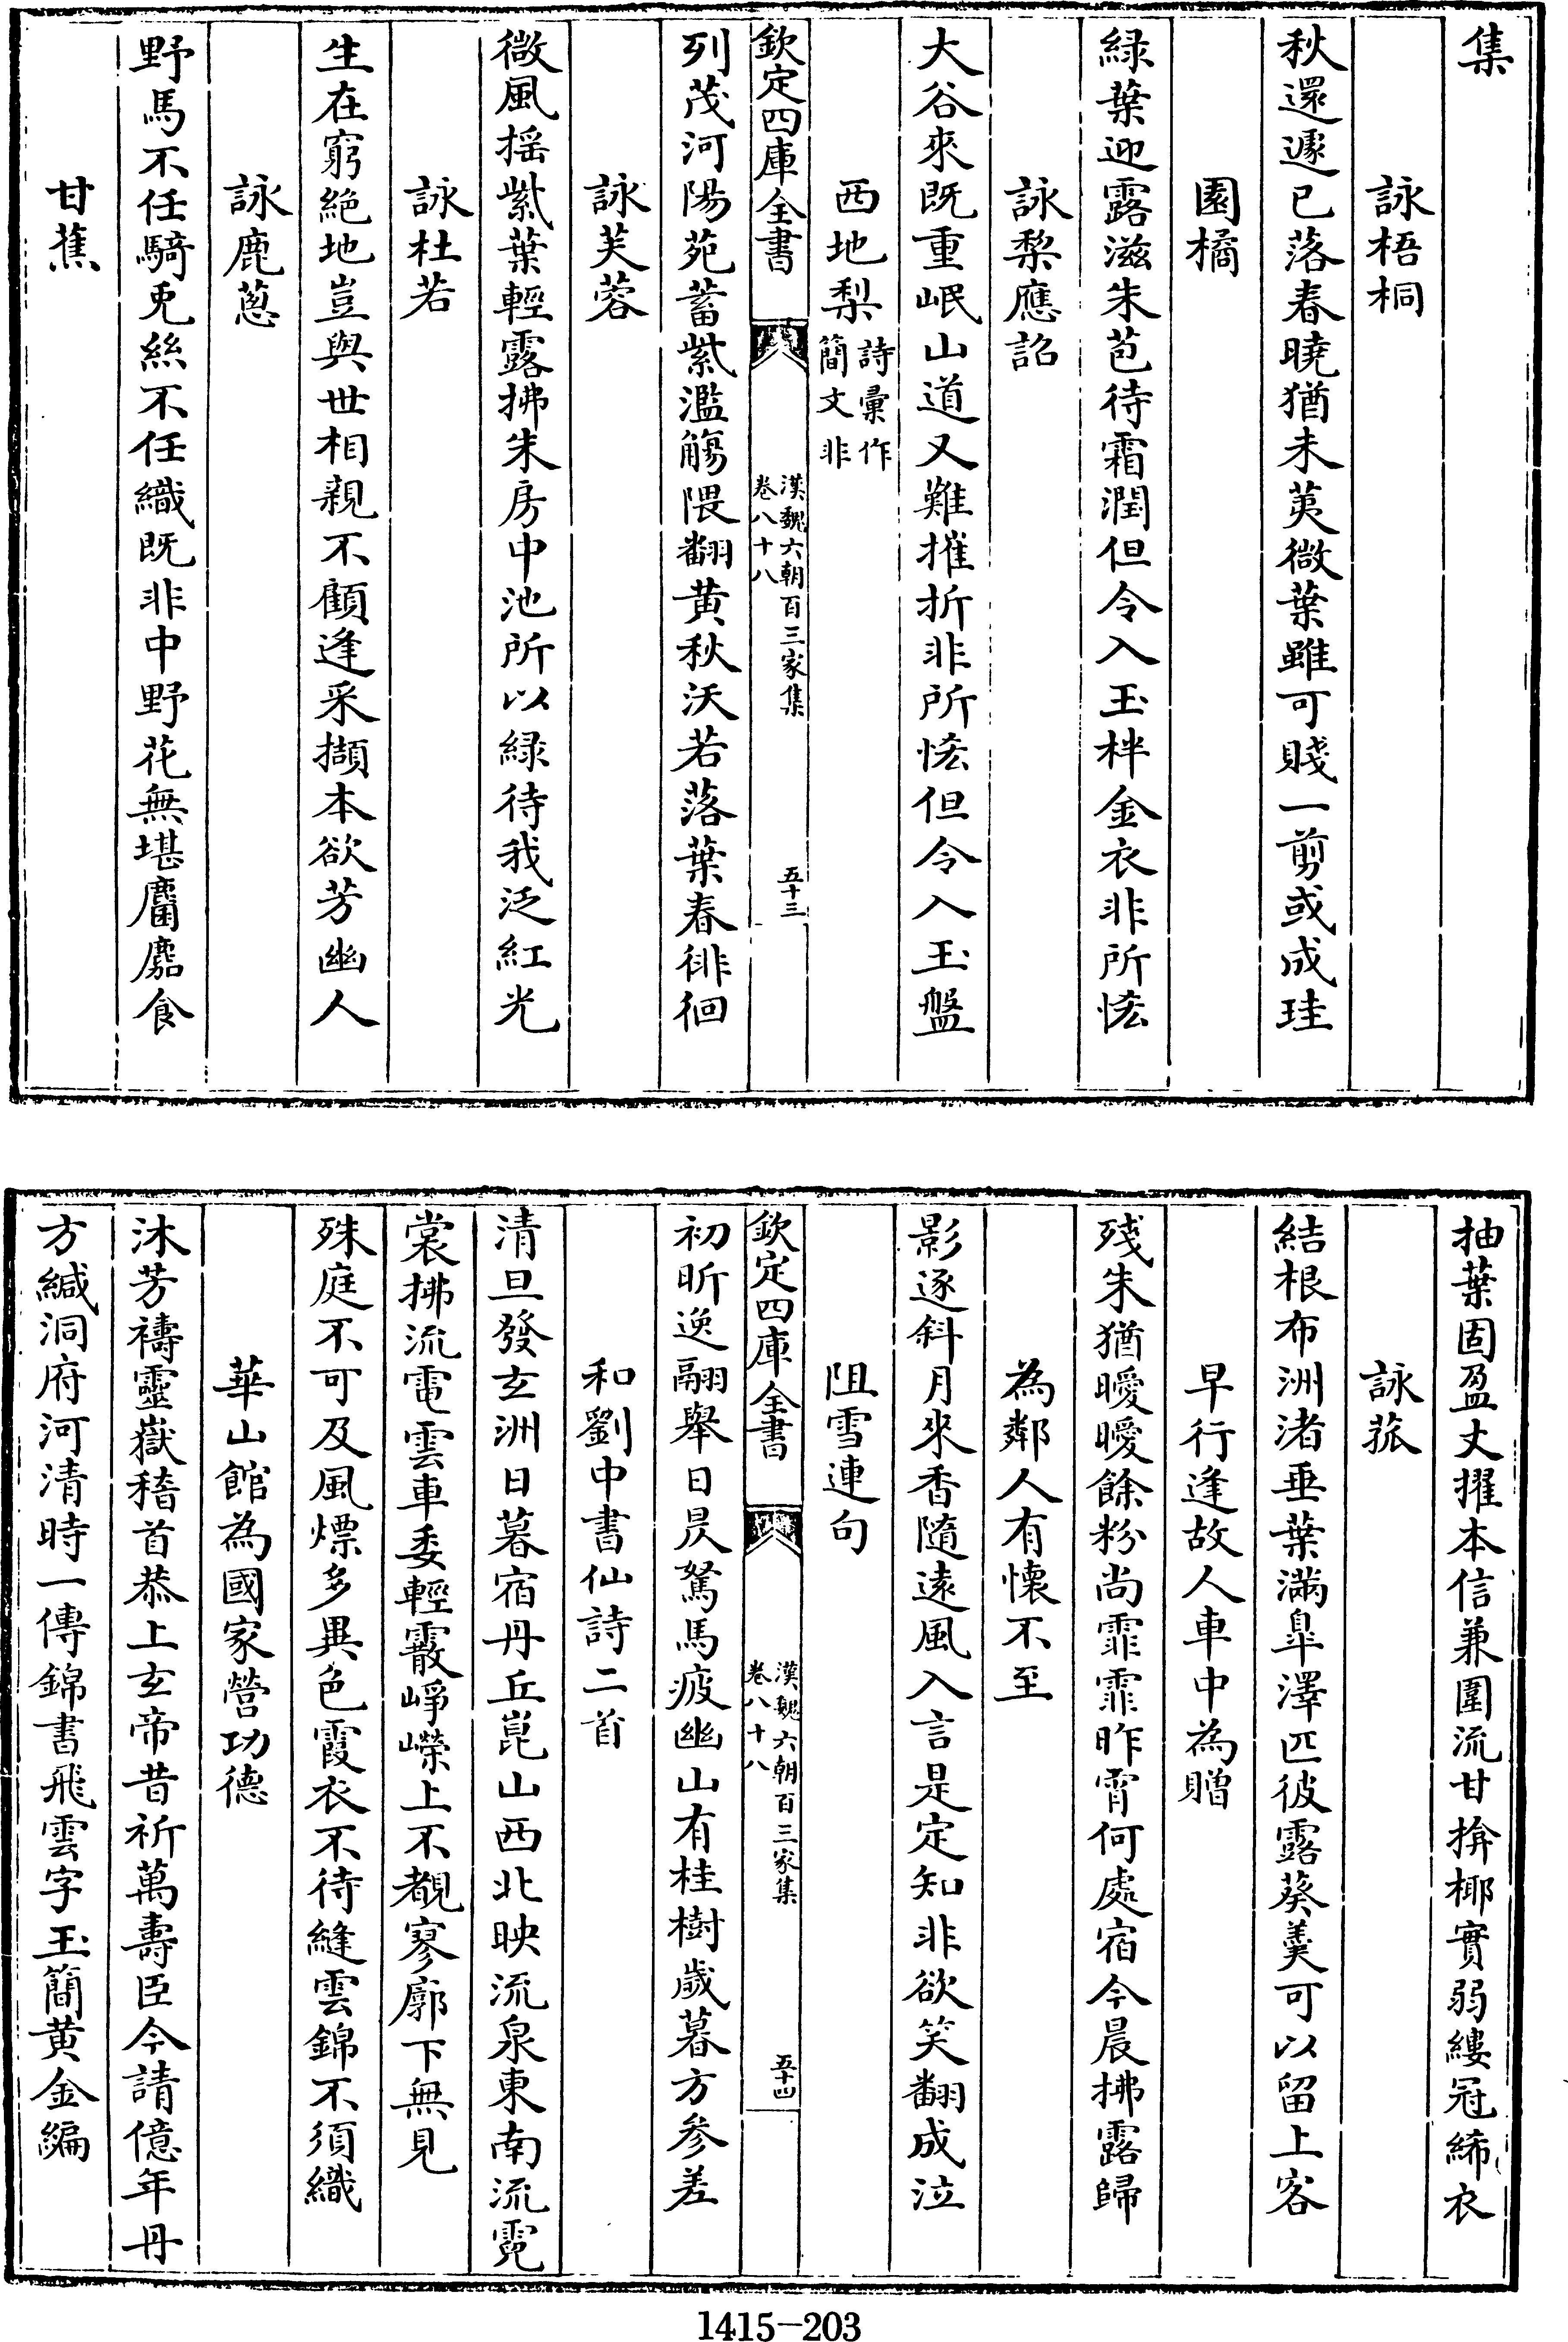 集
詠梧桐
秋還遽已落春曉猶未荑微葉雖可賤一剪或成珪
園橘
緑葉迎露滋朱苞待霜潤但令入玉柈金衣非所恡
詠梨應詔
大谷來既重岷山道又難摧折非所恡但令入玉盤
西地梨詩彙作簡文非
欽定四庫全書
漢魏六朝百三家集
卷八十八
五十三
列茂河陽苑蓄紫濫觴隈翻黄秋沃若落葉春徘徊
詠芙蓉
微風揺紫葉輕露拂朱房中池所以緑待我泛紅光
詠杜若
生在窮絶地豈與世相親不顧逢采擷本欲芳幽人
詠鹿蔥
野馬不任騎兎絲不任織既非中野花無堪麕麚食
甘蕉
抽葉固盈丈擢本信兼圍流甘揜椰實弱縷冠絺衣
詠菰
結根布洲渚垂葉滿臯澤匹彼露葵羹可以留上客
早行逢故人車中為贈
殘朱猶曖曖餘粉尚霏霏昨宵何處宿今晨拂露歸
為鄰人有懷不至
影逐斜月來香隨遠風入言是定知非欲笑翻成泣
阻雪連句
欽定四庫全書
漢魏六朝百三家集
卷八十八
五十四
初昕逸翮舉日昃駑馬疲幽山有桂樹歲暮方參差
和劉中書仙詩二首
清旦發玄洲日暮宿丹丘崑山西北映流泉東南流霓
裳拂流電雲車委輕霰崢嶸上不覩寥廓下無見
殊庭不可及風熛多異色霞衣不待縫雲錦不須織
華山館為國家營功德
沐芳禱靈嶽稽首恭上玄帝昔祈萬壽臣今請億年丹
方緘洞府河清時一傳錦書飛雲字玉簡黄金編
1415-203